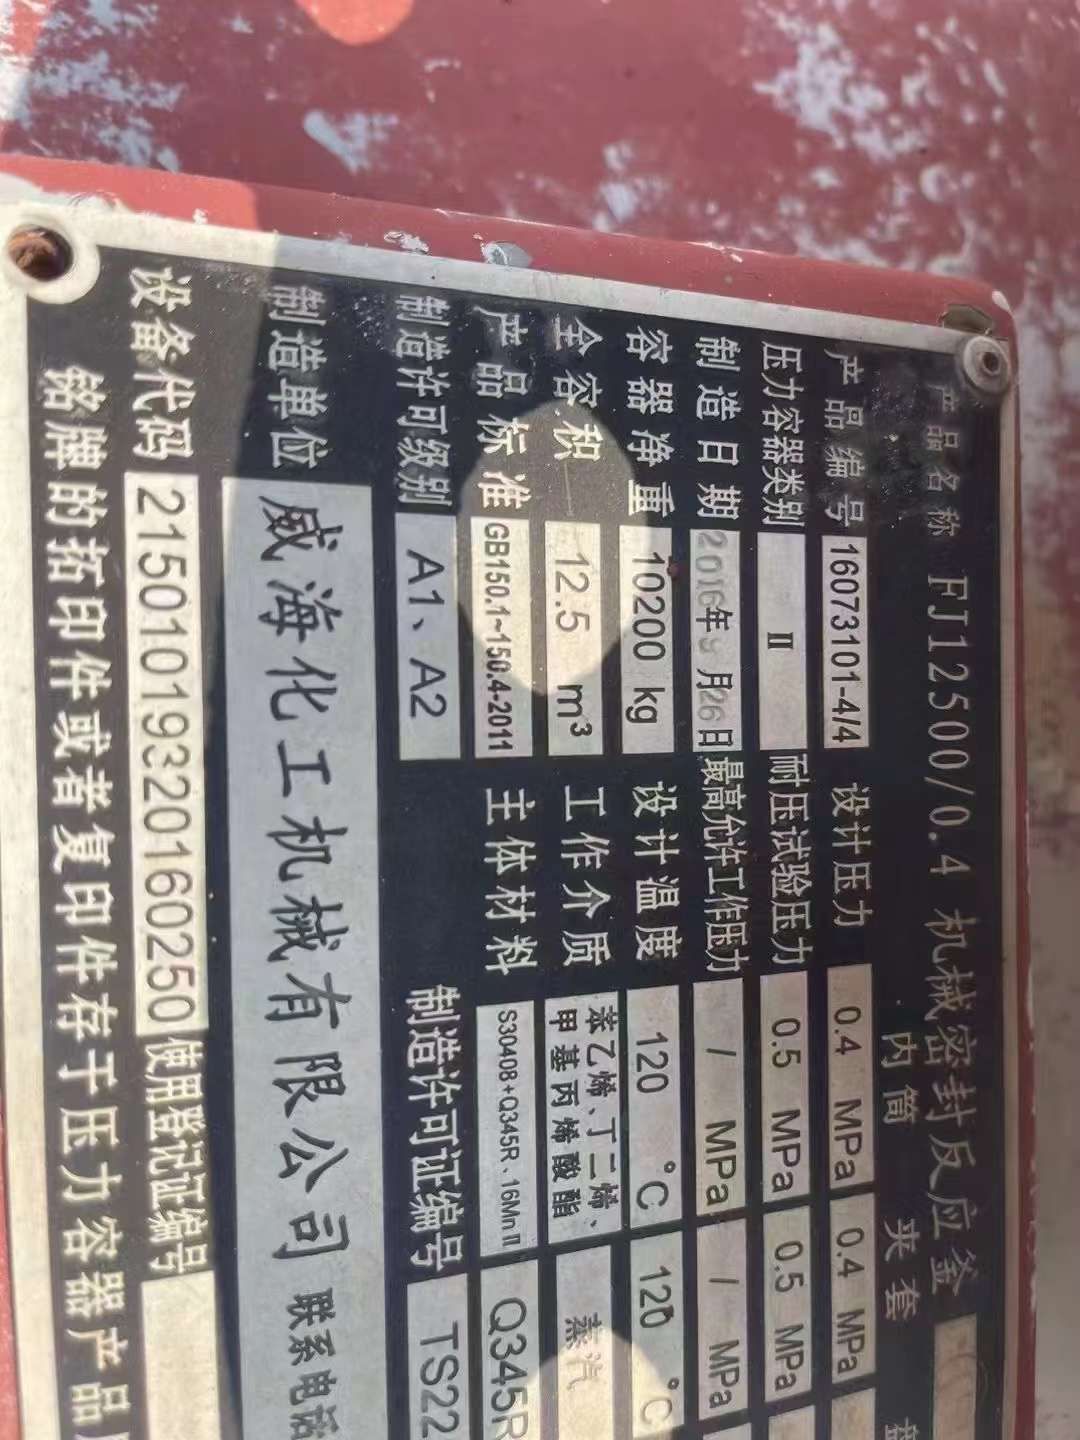 产品名称 FJ12500/0.4 机械密封反应釜
内筒 夹套
产品编号 16073101-4/4 设计压力 0.4 MPa 0.4 MPa
压力容器类别 Ⅱ 耐压试验压力 0.5 MPa 0.5 MPa
制造日期 2016年9月26日 最高允许工作压力 / MPa / MPa
容器净重 10200 kg 设计温度 120 °C 120 °C
全容积 12.5 m³ 工作介质 苯乙烯、丁二烯、甲基丙烯酸酯 蒸汽
产品标准 GB150.1~150.4-2011 主体材料 S30408+Q345R、16MnⅡ Q345R
制造许可级别 A1、A2 制造许可证编号 TS22
制造单位 威海化工机械有限公司 联系电话
设备代码 21501019320160250 使用登记证编号
铭牌的拓印件或者复印件存于压力容器产品